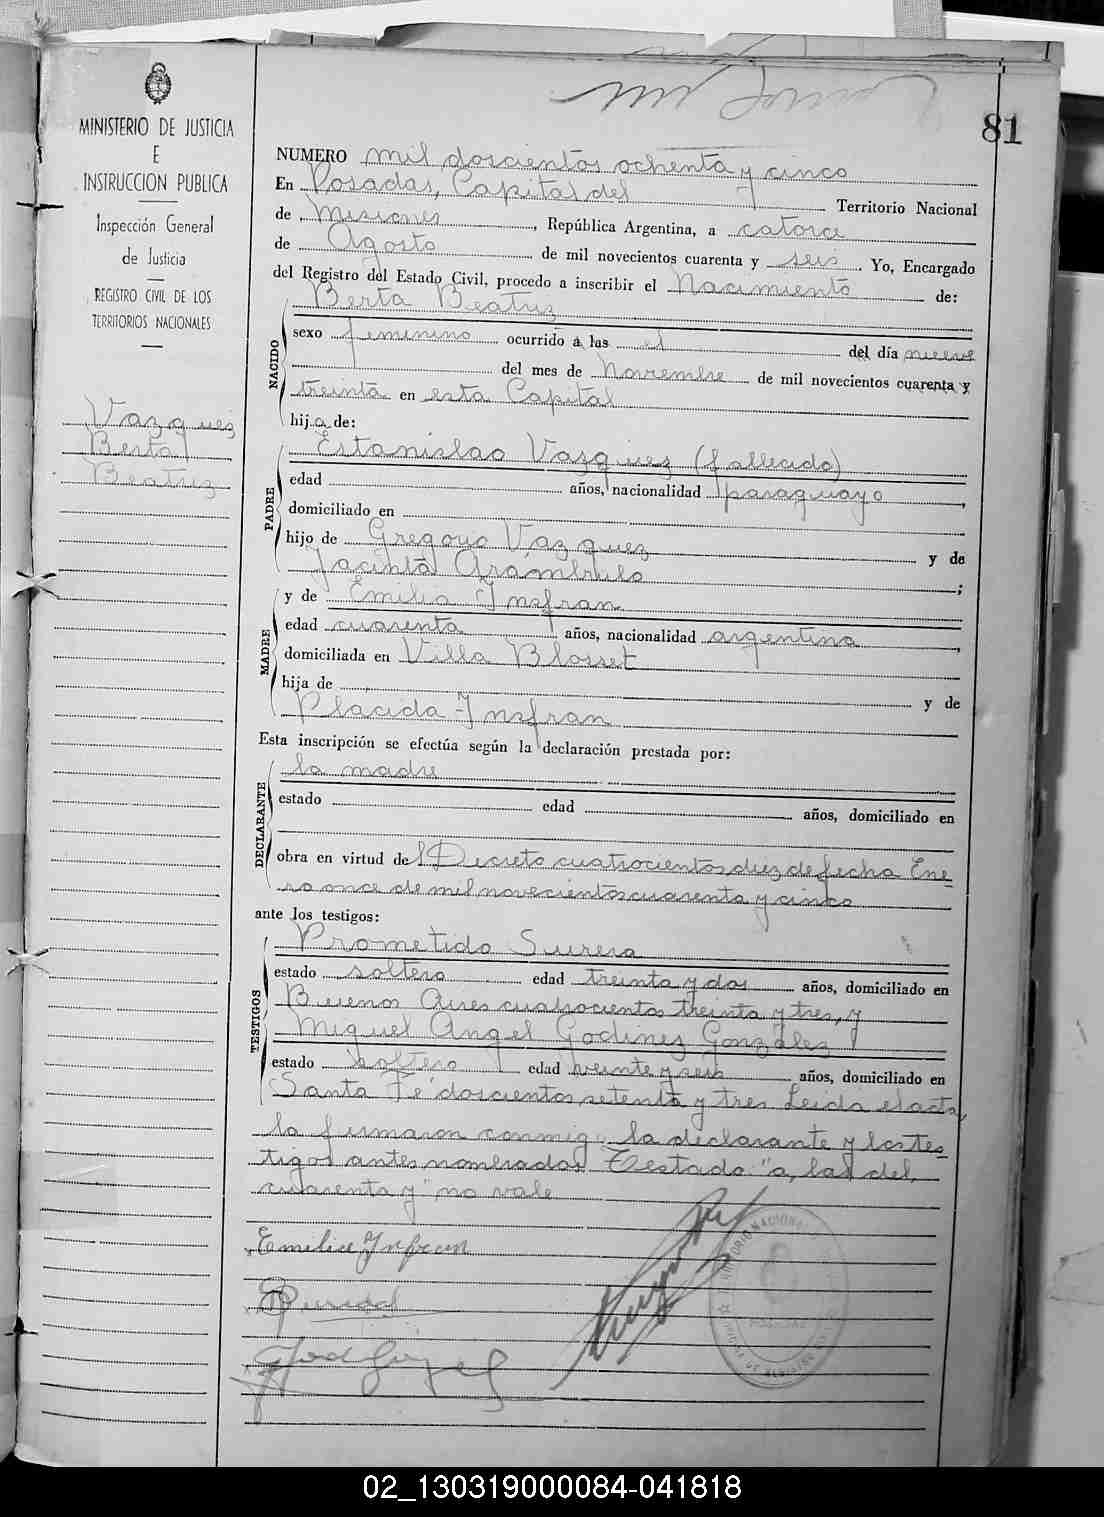 81
MINISTERIO DE JUSTICIA
E
INSTRUCCION PUBLICA
Inspección General
de Justicia
REGISTRO CIVIL DE LOS
TERRITORIOS NACIONALES
Vazquez
Berta
Beatriz
NUMERO mil doscientos ochenta y cinco
En Posadas, Capital del Territorio Nacional
de Misiones, República Argentina, a catorce
de Agosto de mil novecientos cuarenta y seis. Yo, Encargado
del Registro del Estado Civil, procedo a inscribir el Nacimiento de:
NACIDO
Berta Beatriz
sexo femenino ocurrido a las el del día nueve
del mes de Noviembre de mil novecientos cuarenta y
treinta en esta Capital
hija de:
PADRE
Estanislao Vazquez (fallecido)
edad años, nacionalidad paraguayo,
domiciliado en
hijo de Gregorio Vazquez y de
Jacinta Arambulo;
MADRE
y de Emilia Insfran
edad cuarenta años, nacionalidad argentina,
domiciliada en Villa Blosset
hija de y de
Placida Insfran
Esta inscripción se efectúa según la declaración prestada por:
DECLARANTE
la madre
estado edad años, domiciliado en
obra en virtud del Decreto cuatrocientos diez de fecha Ene-
ro once de mil novecientos cuarenta y cinco
ante los testigos:
TESTIGOS
Prometido
estado soltero edad treinta y dos años, domiciliado en
Buenos Aires cuatrocientos treinta y tres, y
Miguel Angel Godinez Gonzalez
estado soltero edad veinte y seis años, domiciliado en
Santa Fé doscientos setenta y tres Leida el acta,
la firmaron conmigo la declarante y los tes-
tigos antes nombrados Testado "a, las del,
cuarenta y" no vale
Emilia Insfran
02_130319000084-041818